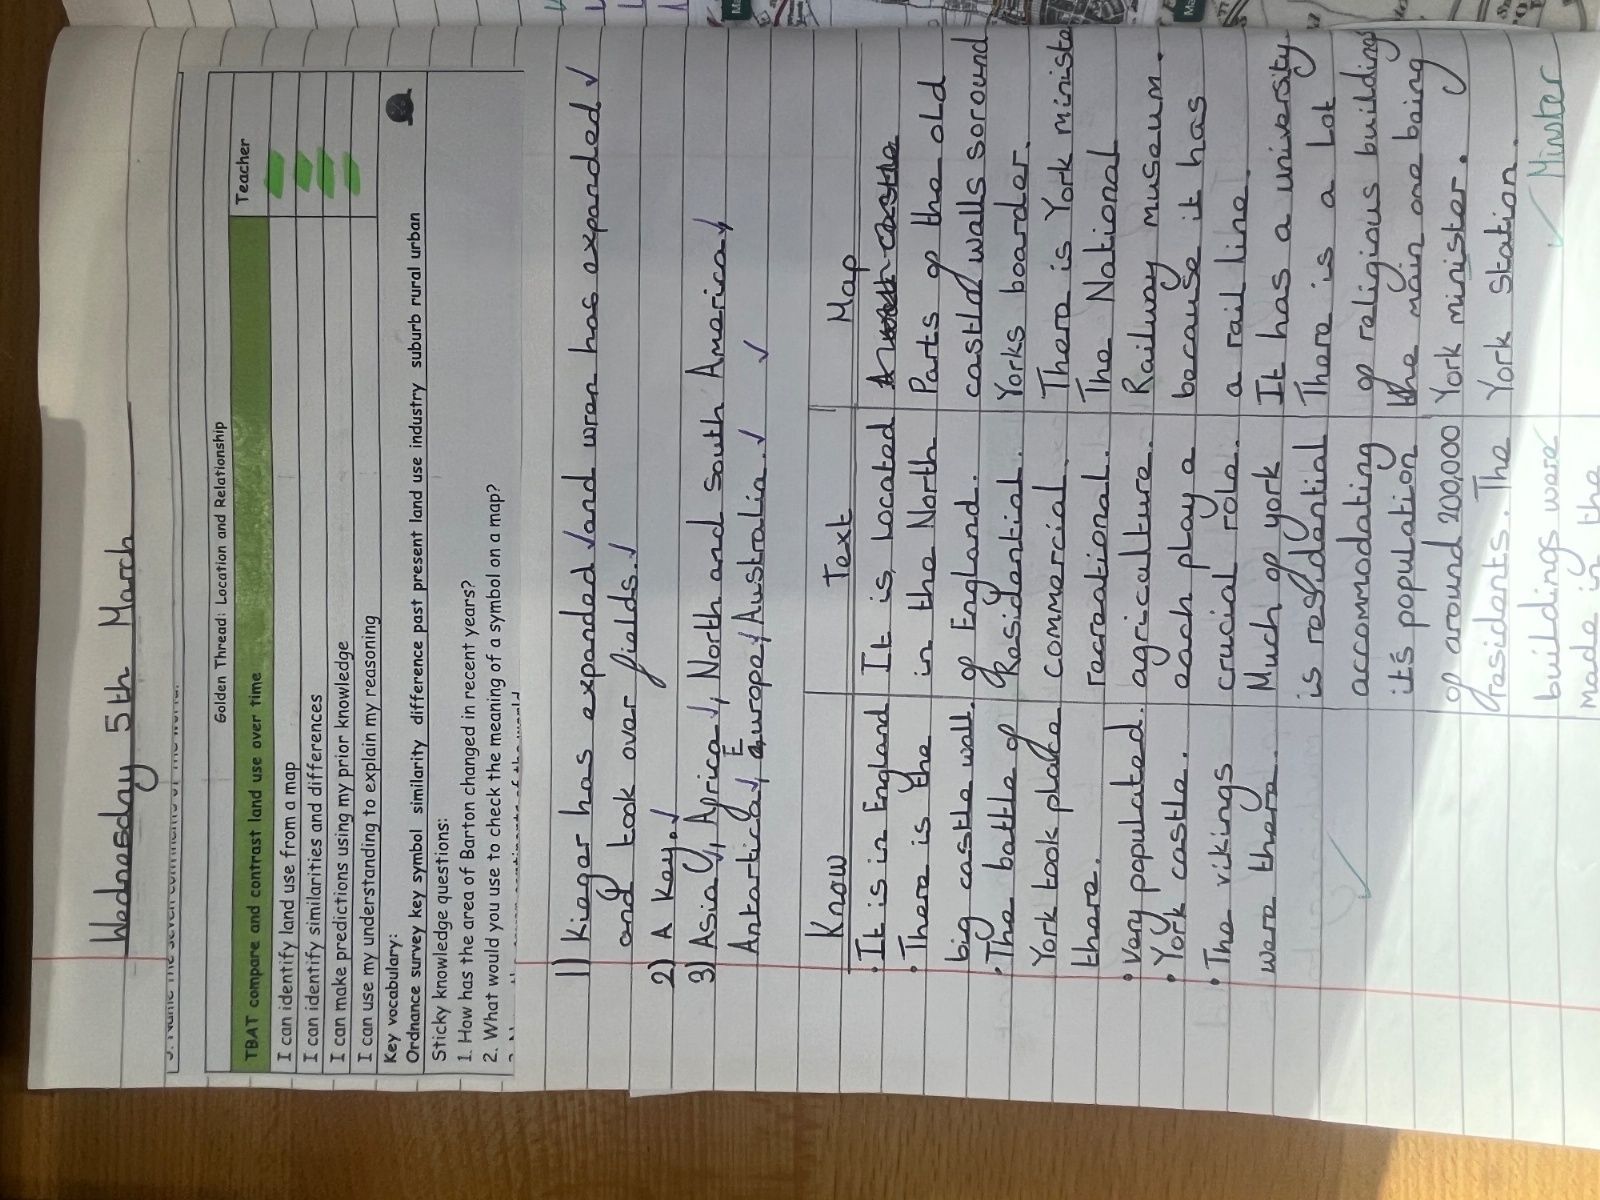 Wednesday 5th March
Golden Thread: Location and Relationship
TBAT compare and contrast land use over time
Teacher
I can identify land use from a map
I can identify similarities and differences
I can make predictions using my prior knowledge
I can use my understanding to explain my reasoning
Key vocabulary:
Ordnance survey key symbol similarity difference past present land use industry suburb rural urban
Sticky knowledge questions:
1. How has the area of Barton changed in recent years?
2. What would you use to check the meaning of a symbol on a map?
1) kieger has expanded and wren has expanded
and took over fields.
2) A key.
3) Asia, Africa, North and south America,
Antartica, Europe, Australia.
Know
• It is in England
• There is the
big castle wall.
• The battle of
York took place
there.
• very populated.
• York castle.
• The vikings
were there.
Text
It is Located
in the North
of England.
Residential.
commercial.
recreational.
agriculture.
each play a
crucial role.
Much of york
is residential
accommodating
it's population
of around 200,000
residents. The
buildings were
made in the
Map
Parts of the old
castle walls soround
Yorks boarder.
There is York ministe
The National
Railway museum.
because it has
a rail line.
It has a university.
There is a Lot
of religious building
the main one being
York minister.
York station.
Minster